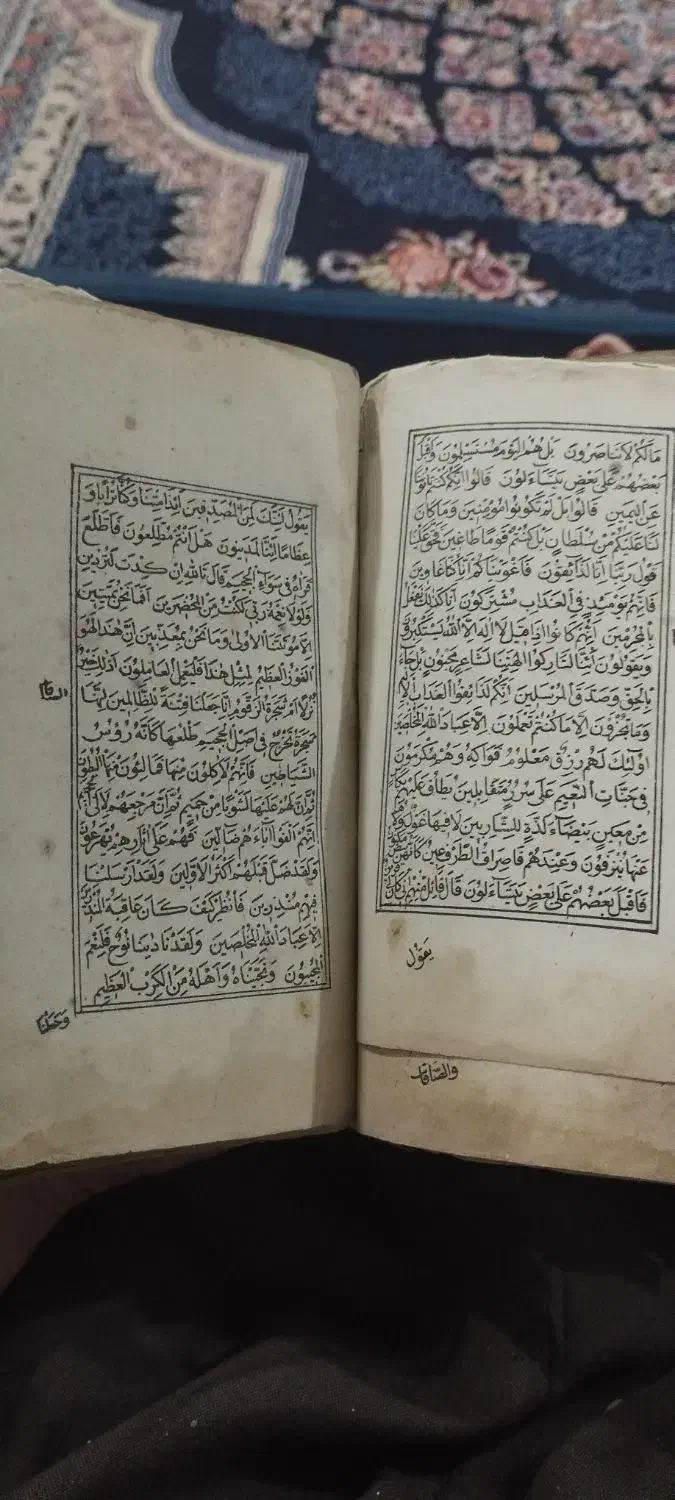 مَالَكُمْ لَاتَنَاصَرُونَ بَلْ هُمُ الْيَوْمَ مُسْتَسْلِمُونَ وَاَقْبَلَ
بَعْضُهُمْ عَلَى بَعْضٍ يَتَسَاءَلُونَ قَالُوا اِنَّكُمْ كُنْتُمْ تَاْتُونَنَا
عَنِ الْيَمِينِ قَالُوا بَلْ لَمْ تَكُونُوا مُؤْمِنِينَ وَمَاكَانَ
لَنَا عَلَيْكُمْ مِنْ سُلْطَانٍ بَلْ كُنْتُمْ قَوْمًا طَاغِينَ فَحَقَّ عَلَيْنَا
قَوْلُ رَبِّنَا اِنَّا لَذَائِقُونَ فَاَغْوَيْنَاكُمْ اِنَّا كُنَّا غَاوِينَ
فَاِنَّهُمْ يَوْمَئِذٍ فِى الْعَذَابِ مُشْتَرِكُونَ اِنَّا كَذٰلِكَ نَفْعَلُ
بِالْمُجْرِمِينَ اِنَّهُمْ كَانُوا اِذَا قِيلَ لَهُمْ لَا اِلٰهَ اِلَّا اللّٰهُ يَسْتَكْبِرُونَ
وَيَقُولُونَ اَئِنَّا لَتَارِكُوا اٰلِهَتِنَا لِشَاعِرٍ مَجْنُونٍ بَلْ جَاءَ
بِالْحَقِّ وَصَدَّقَ الْمُرْسَلِينَ اِنَّكُمْ لَذَائِقُوا الْعَذَابِ الْاَلِيمِ
وَمَا تُجْزَوْنَ اِلَّا مَا كُنْتُمْ تَعْمَلُونَ اِلَّا عِبَادَ اللّٰهِ الْمُخْلَصِينَ
اُولٰئِكَ لَهُمْ رِزْقٌ مَعْلُومٌ فَوَاكِهُ وَهُمْ مُكْرَمُونَ
فِى جَنَّاتِ النَّعِيمِ عَلَى سُرُرٍ مُتَقَابِلِينَ يُطَافُ عَلَيْهِمْ بِكَاْسٍ
مِنْ مَعِينٍ بَيْضَاءَ لَذَّةٍ لِلشَّارِبِينَ لَا فِيهَا غَوْلٌ وَلَا هُمْ
عَنْهَا يُنْزَفُونَ وَعِنْدَهُمْ قَاصِرَاتُ الطَّرْفِ عِينٌ كَاَنَّهُنَّ بَيْضٌ مَكْنُونٌ
فَاَقْبَلَ بَعْضُهُمْ عَلَى بَعْضٍ يَتَسَاءَلُونَ قَالَ قَائِلٌ مِنْهُمْ اِنِّى كَانَ
يَقُولُ
والصافات
يَقُولُ اَئِنَّكَ لَمِنَ الْمُصَدِّقِينَ اَئِذَا مِتْنَا وَكُنَّا تُرَابًا وَ
عِظَامًا اَئِنَّا لَمَدِينُونَ قَالَ هَلْ اَنْتُمْ مُطَّلِعُونَ فَاطَّلَعَ
فَرَاٰهُ فِى سَوَاءِ الْجَحِيمِ قَالَ تَاللّٰهِ اِنْ كِدْتَ لَتُرْدِينِ
وَلَوْلَا نِعْمَةُ رَبِّى لَكُنْتُ مِنَ الْمُحْضَرِينَ اَفَمَا نَحْنُ بِمَيِّتِينَ
اِلَّا مَوْتَتَنَا الْاُولٰى وَمَا نَحْنُ بِمُعَذَّبِينَ اِنَّ هٰذَا لَهُوَ
الْفَوْزُ الْعَظِيمُ لِمِثْلِ هٰذَا فَلْيَعْمَلِ الْعَامِلُونَ اَذٰلِكَ خَيْرٌ
نُزُلًا اَمْ شَجَرَةُ الزَّقُّومِ اِنَّا جَعَلْنَاهَا فِتْنَةً لِلظَّالِمِينَ اِنَّهَا
شَجَرَةٌ تَخْرُجُ فِى اَصْلِ الْجَحِيمِ طَلْعُهَا كَاَنَّهُ رُؤُسُ
الشَّيَاطِينِ فَاِنَّهُمْ لَاٰكِلُونَ مِنْهَا فَمَالِئُونَ مِنْهَا الْبُطُونَ
ثُمَّ اِنَّ لَهُمْ عَلَيْهَا لَشَوْبًا مِنْ حَمِيمٍ ثُمَّ اِنَّ مَرْجِعَهُمْ لَاِلَى الْجَحِيمِ
اِنَّهُمْ اَلْفَوْا اٰبَاءَهُمْ ضَالِّينَ فَهُمْ عَلَى اٰثَارِهِمْ يُهْرَعُونَ
وَلَقَدْ ضَلَّ قَبْلَهُمْ اَكْثَرُ الْاَوَّلِينَ وَلَقَدْ اَرْسَلْنَا
فِيهِمْ مُنْذِرِينَ فَانْظُرْ كَيْفَ كَانَ عَاقِبَةُ الْمُنْذَرِينَ
اِلَّا عِبَادَ اللّٰهِ الْمُخْلَصِينَ وَلَقَدْ نَادٰينَا نُوحٌ فَلَنِعْمَ
الْمُجِيبُونَ وَنَجَّيْنَاهُ وَاَهْلَهُ مِنَ الْكَرْبِ الْعَظِيمِ
وَجَعَلْنَا